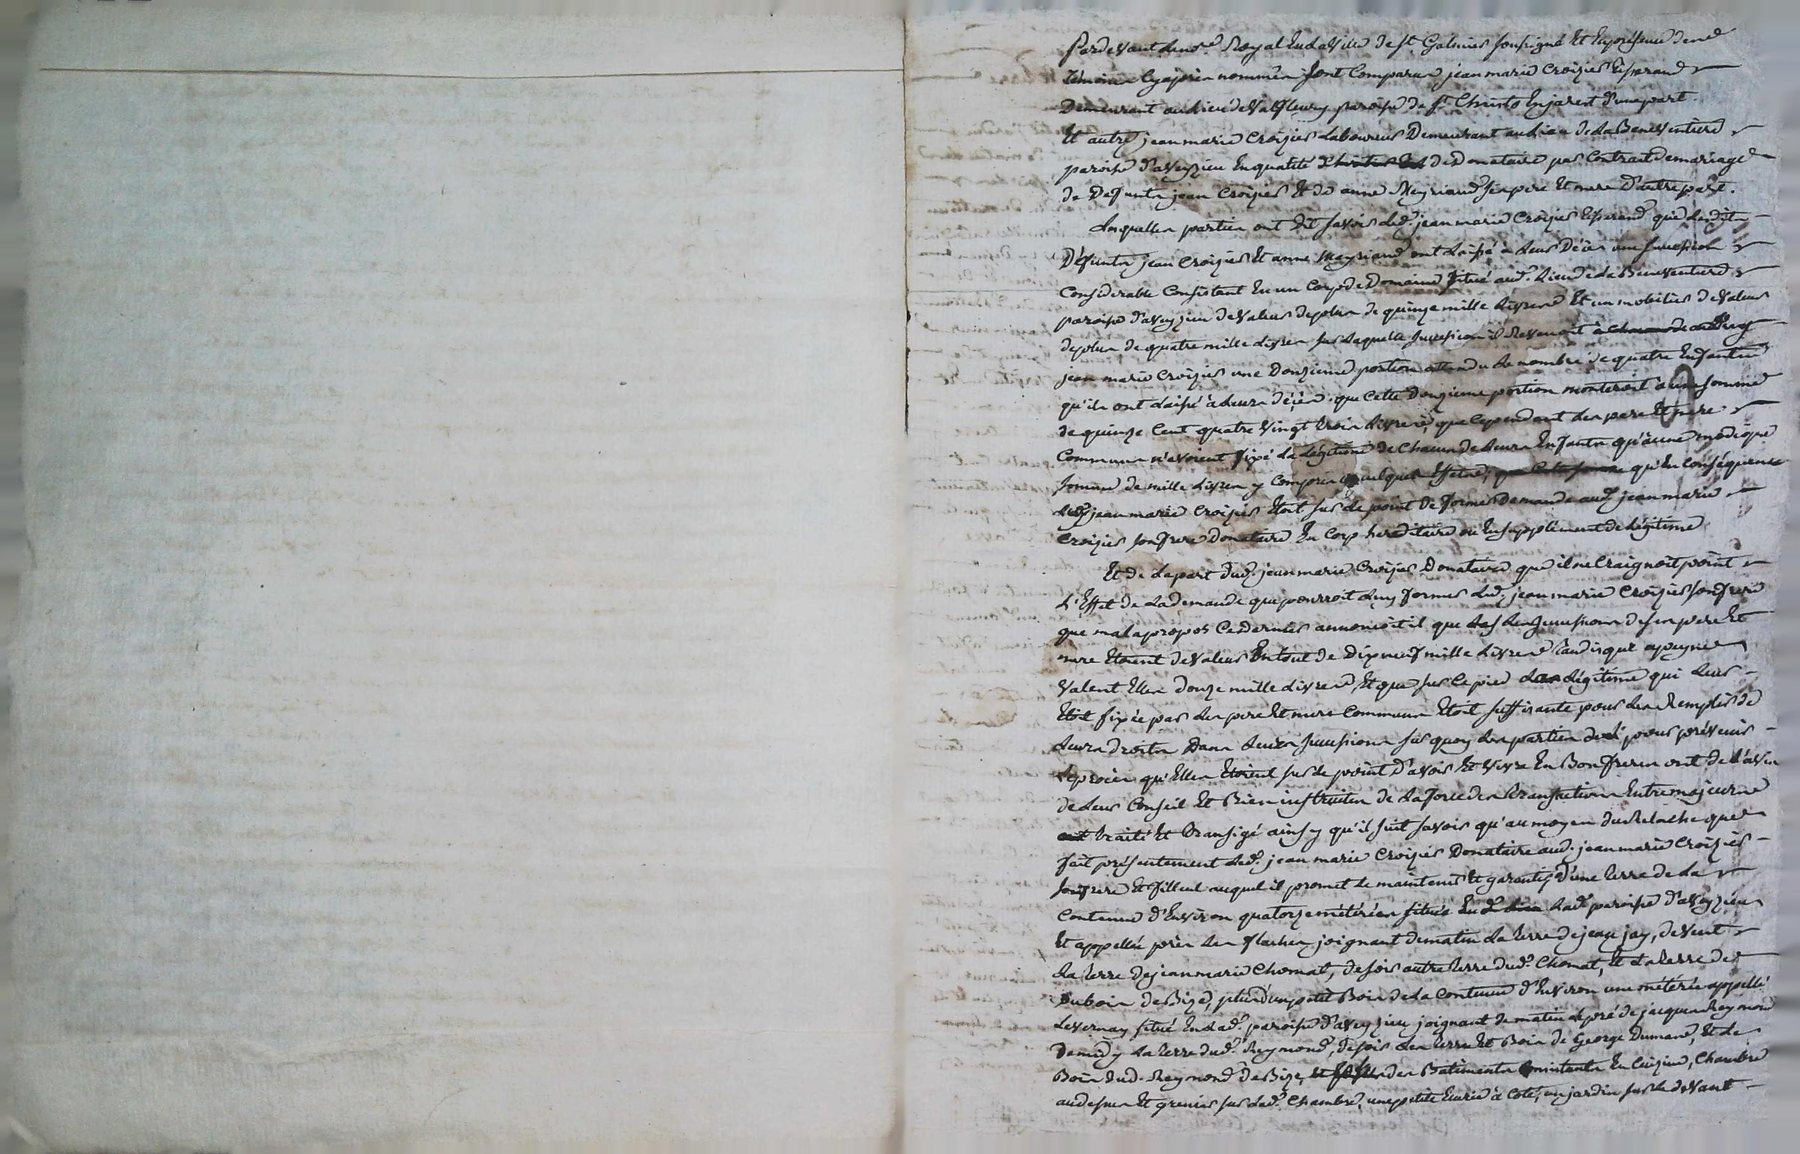 Pardevant le no.re Royal en la ville de St Galmier soussigné Et En présence des
témoins cy après nommés sont Comparus jean marie Croizier
Demeurant au lieu de Valfleury paroisse de St. Christo En jarest d'une part.
Et autre jean marie Croizier Laboureur Demeurant au lieu de La Beneventiere
paroisse d'aveyzieu En qualité de Donataire par Contrait de mariage
de Defunts jean Croizier Et de anne Meyriand ses pere Et mere D'autre part.
Lesquelles parties ont Dit savoir led. jean marie Croizier que lesdits
Défunts jean Croizier Et anne Mayriand ont Laissé à Leur Décès une succession
Considerable Consistant En un Corps de Domaine situé aud. Lieu de La Beneventiere
paroisse d'aveyzieu de valeur de plus de quinze mille Livres Et un mobilier de Valeur
de plus de quatre mille Livres sur Laquelle succession il Revenoit
jean marie Croizier une Douzieme portion attendu Le nombre de quatre Enfants
qu'ils ont Laissé à Leurs décès, que Cette Douzieme portion monteroit a une somme
de quinze Cent quatre vingt trois Livres, que Cependant Les pere Et mere
Communs n'avoient fixé La Légitime de Chacun de Leurs Enfants qu'à une modique
somme de mille Livres y Compris quelques Effets, qu'En Conséquence
led. jean marie Croizier Etoit sur Le point De former Demande aud. jean marie
Croizier son frere Donataire En Corps hereditaire ou En supplément de Légitime
Et de La part dud. jean marie Croizier Donataire que il ne Craignoit point
L'Effet de La demande que pourroit Luy former Led. jean marie Croizier son frere
que mal apropos Ce Dernier annonçoit il que Les successions de ses pere Et
mere Etoient de Valeur En tout de Dix neuf mille Livres tandis que a peyne
Valent Elles Douze mille Livres, Et que sur Ce pied La Légitime qui Leur
Etoit fixée par Les pere Et mere Communs Etoit suffisante pour Les Remplir de
Leurs Droits Dans Leurs successions sur quoy Les parties pour prévenir
Le procès qu'Elles Etoient sur Le point D'avoir Et vivre En Bons freres ont de L'avis
de Leur Conseil Et Bien instruites de La force des Transactions Entre majeurs
traité Et Transigé ainsy qu'il suit savoir qu'au moyen du Relache que
fait présentement Led. jean marie Croizier Donataire aud. jean marie Croizier
son frere Et filleul auquel il promet de maintenir Et garantir D'une terre de La
Contenue D'Environ quatorze métérées située Lad. paroisse D'aveyzieu
Et appellée près Les flaches joignant de matin La terre de jean jay, de vent
La terre de jean marie Chomat, de soir autre terre dud. Chomat, Et La terre de
Duboin de Bize, plus d'un petit Bois de La Contenue D'Environ une métérée appellé
Le vernay situé En Lad. paroisse d'aveyzieu joignant de matin Le pré de jacques Reymond
De midy La terre dud. Reymond, de soir Les terre Et Bois de George Dumand, Et de
Boin dud. Reymond de Bize, des Batiments Consistants En Cuisine, Chambre
au dessus Et grenier sur Lad. Chambre, une petite Ecurie à Coté, un jardin sur Le devant